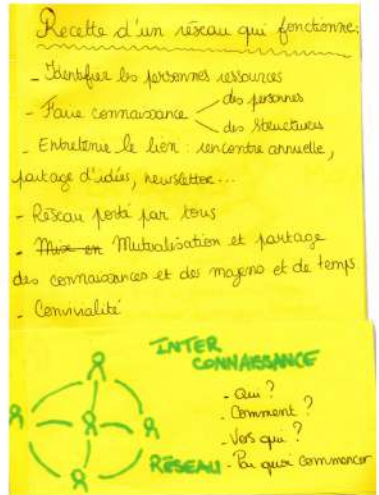 Recette d'un réseau qui fonctionne:
- Identifier les personnes ressources
- Faire connaissance des personnes
des structures
- Entretenir le lien : rencontre annuelle,
partage d'idées, newsletter...
- Réseau porté par tous
- Mise en Mutualisation et partage
des connaissances et des moyens et de temps
- Convivialité
INTER
CONNAISSANCE
- Qui ?
- Comment ?
- Vers qui ?
RÉSEAU - Par quoi commencer